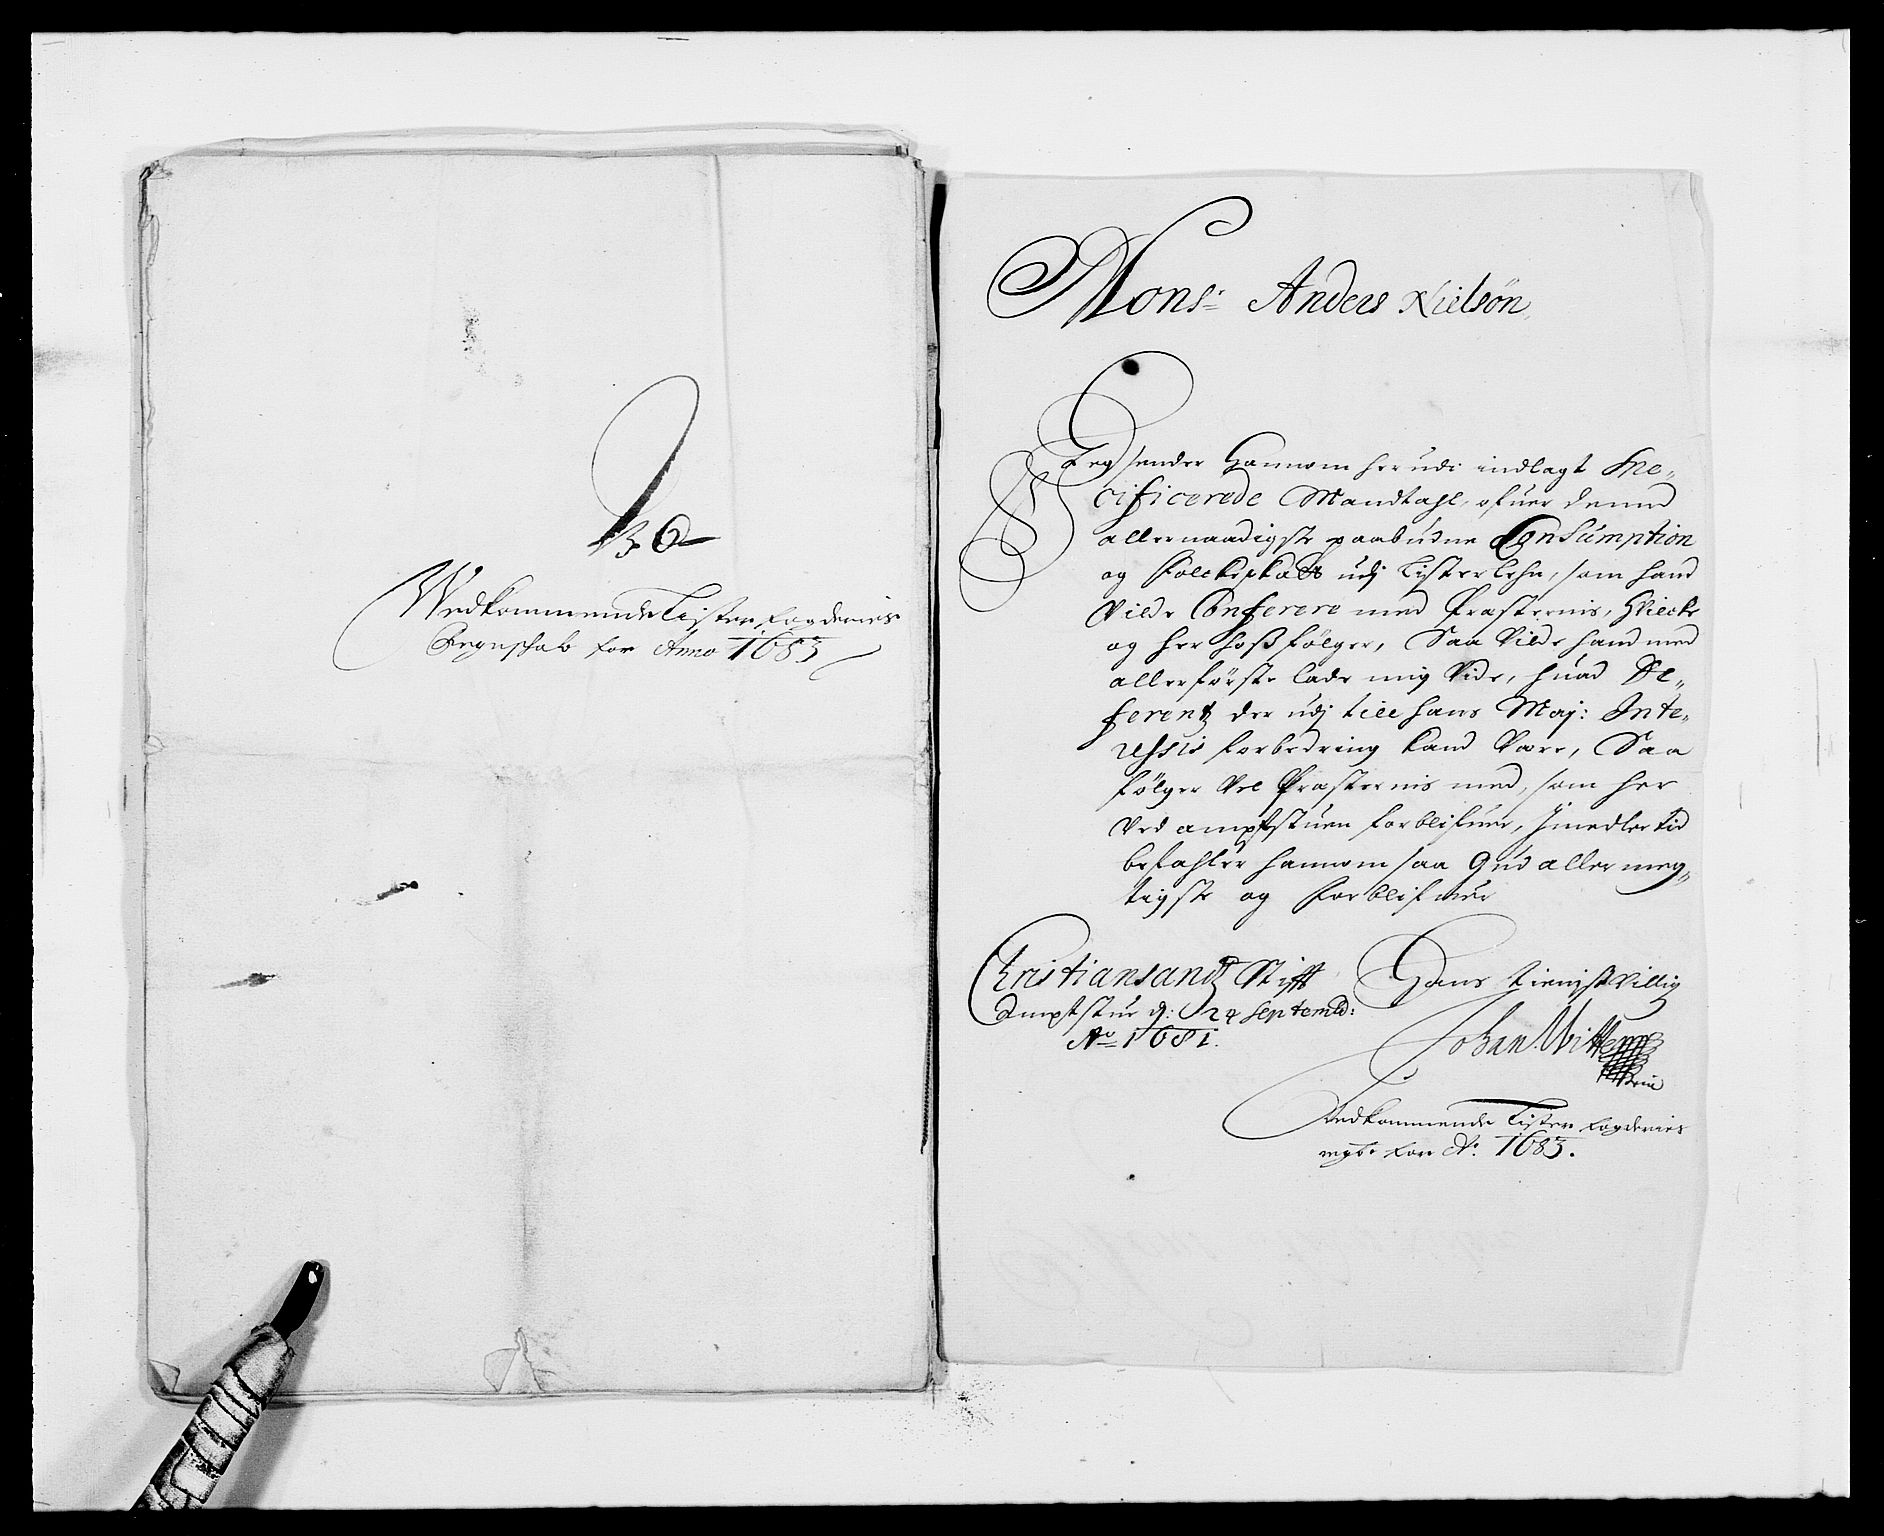 No 36
Wedkommende Lister fogderies
Regnskab for Anno 1683
Monsr Anders Nielsøn,
Jeg sender Hannom herudi indlagt Spe-
cificerede Mandtahl, ofuer denne
allernaadigste paabudne Consumption
og folckeskatt udj Listerlehn, som hand
vilde Conferere med Præsternis, Hvilcke
og her hoß følger, Saa vilde hand med
allerførste lade mig vide, huad De-
ferentz der udj till hans Maj: Inte-
ressis forbedring kand være, Saa
følger vel Præsternis med, som her
ved amptstuen forblifuer, Jmedlertid
befahler hannom saa Gud allermeg-
tigste og forblifuer
Christiansandtz Stifft
Amptstue d: 24 Septemb:
Ao 1681.
Hans tienistvillig
Johan
Wedkommende Lister fogderies
regsk: for Ao: 1683.